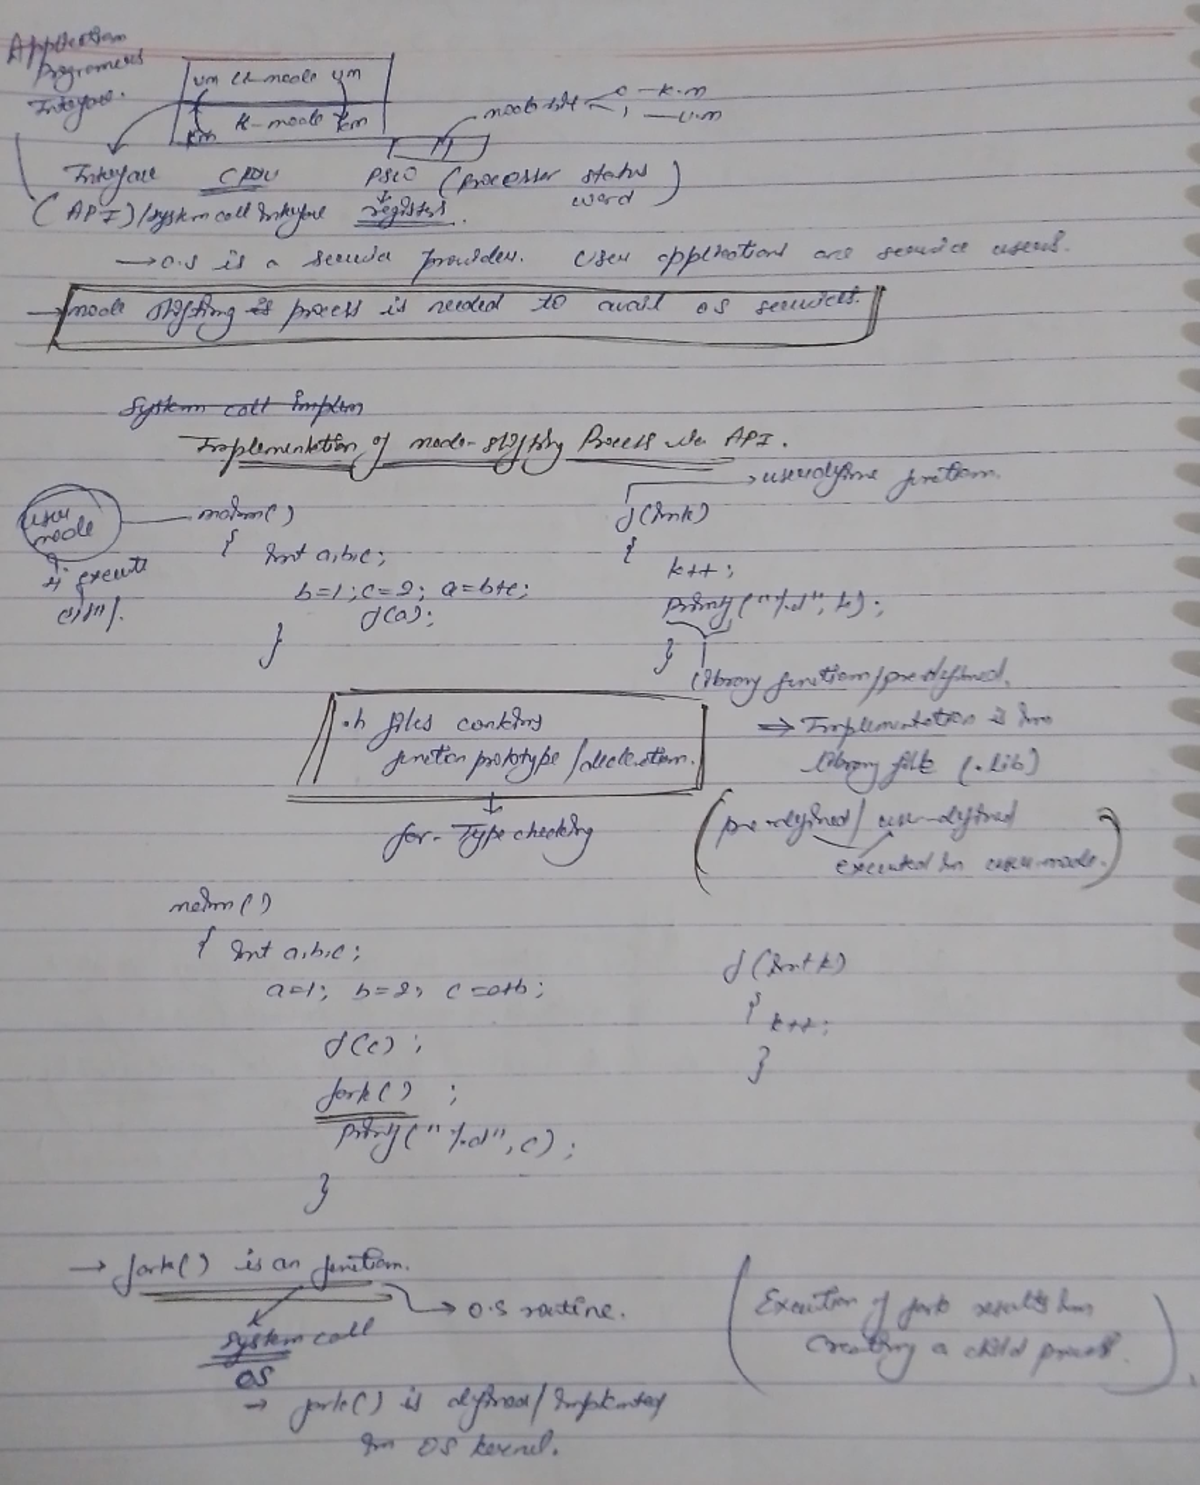 Application
Programmers
Interface.
um U-mode um
K-mode
km km
mode bit 0 - k.m
1 - u.m
Interface CPU PSW (Processor status word)
(API)/system call Interface registers.
→ O.S is a service provider. User applications are service users.
→ mode shifting is process is needed to avail OS services.
System call Implem
Implementation of mode-shifting Process via API.
→ userdefine function.
user mode
main() f(int k)
{ int a,b,c; {
k++;
b=1; c=2; a=b+c; printf("%d", k);
f(a);
} }
library function/pre-defined.
.h files contains
function prototype/declaration.
⇒ Implementation is in
library file (.lib)
for - Type checking
(pre-defined/ user-defined
executed in user mode.)
main()
{ int a,b,c; f(int k)
a=1; b=2; c=a+b; { k++;
f(c); }
fork() ;
printf("%d", c);
}
→ fork() is an function.
→ O.S routine.
System call
OS
(Execution of fork results in
creating a child process.)
→ fork() is defined/implemented
in OS kernel.